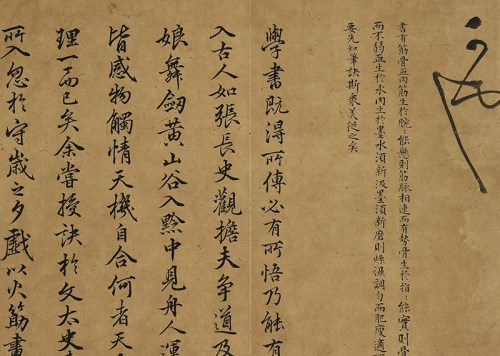 書有筋骨血肉筋生於腕〻能懸則筋脉相連而有勢骨生於指〻能實則骨
而不弱血生於水肉生於墨水須新汲墨須新磨則燥濕調勻而肥瘦適
要先知筆訣斯衆美從之矣
學書既得所傳必有所悟乃能有
入古人如張長史觀擔夫爭道及
娘舞劒黃山谷入黔中見舟人運
皆感物觸情天機自合何者天
理一而已矣余嘗授訣於文太史
所入忽於守嵗之夕戲以火筋畫